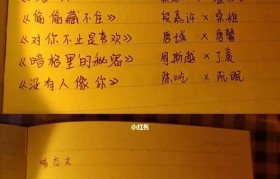 《偷偷藏不住》 段嘉许 × 桑稚
《对你不止是喜欢》 唐城 × 唐馨
《暗格里的秘密》 周斯越 × 丁羡
《没有人像你》 陈屹 × 阮眠
小红书